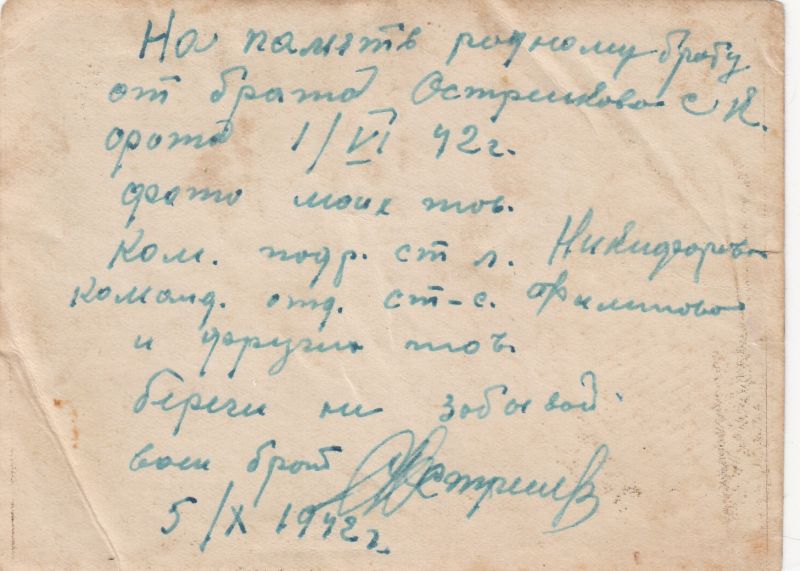 На память родному брату
от брата Острикова С И.
фото 1/VI 42г.
фото моих тов.
Ком. подр. ст л. Никифорова
команд. отд. ст-с. Филипова
и других товъ
береги не забывай
ваш брат
5/X 1942г.